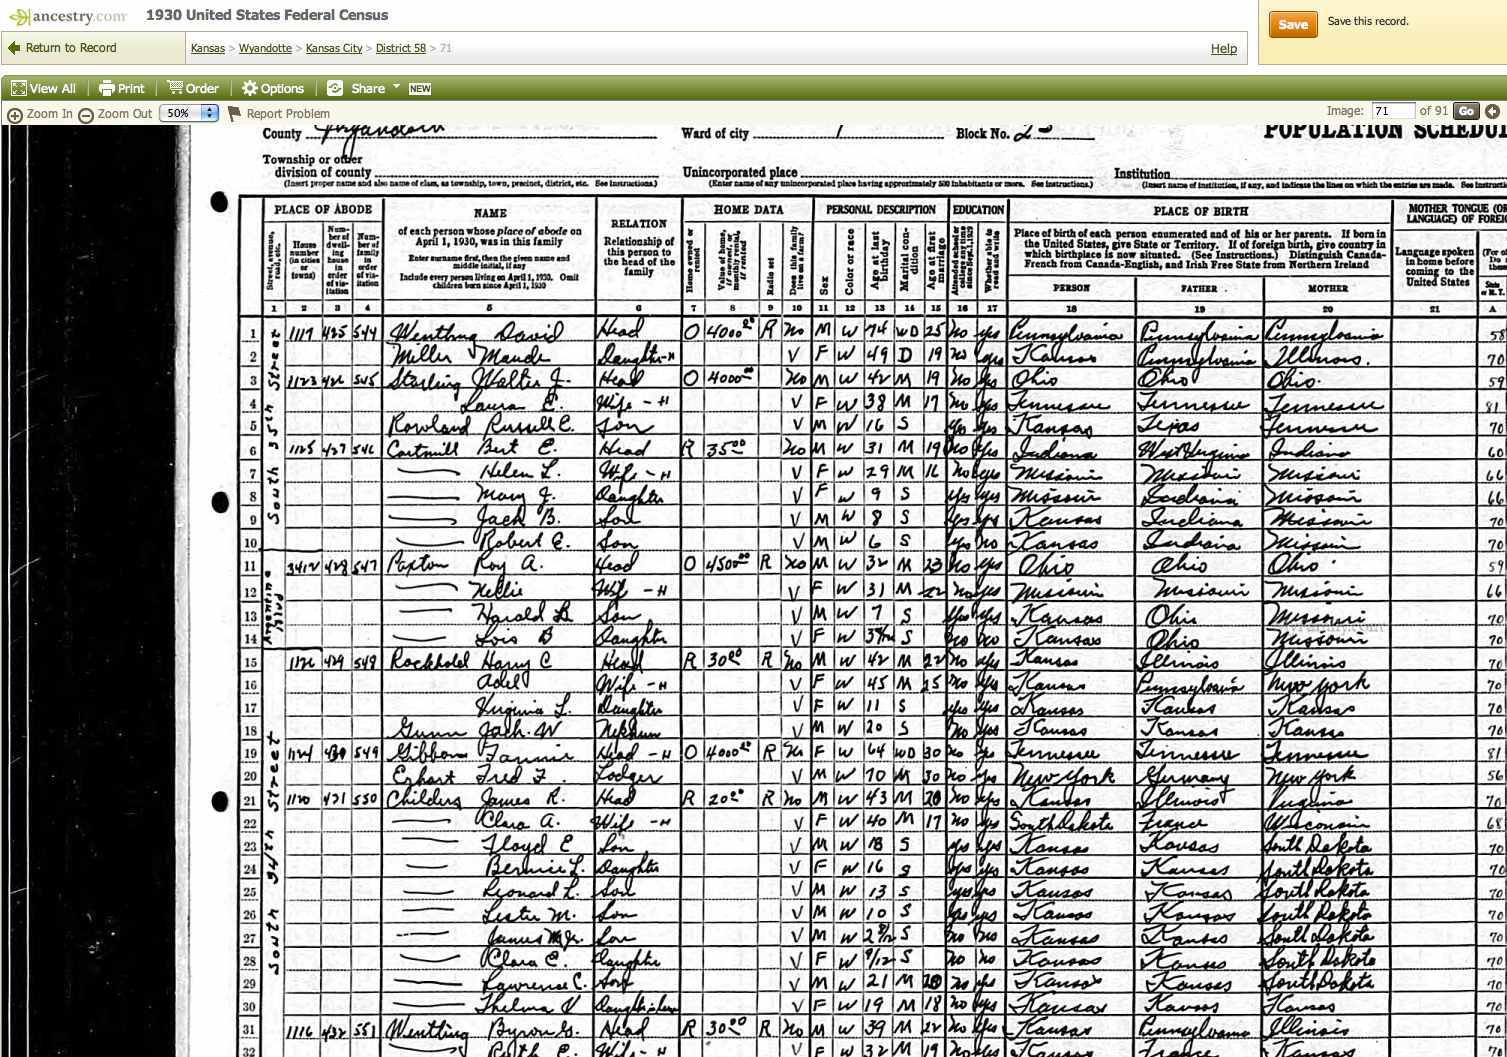 ancestry.com 1930 United States Federal Census
Save Save this record.
Return to Record Kansas > Wyandotte > Kansas City > District 58 > 71 Help
View All Print Order Options Share NEW
Zoom In Zoom Out 50% Report Problem Image: 71 of 91 Go
County Wyandotte Ward of city 1 Block No. POPULATION SCHEDU
Township or other
division of county Unincorporated place Institution
(Insert proper name and also name of class, as township, town, precinct, district, etc. See instructions.) (Enter name of any unincorporated place having approximately 500 inhabitants or more. See instructions.) (Insert name of institution, if any, and indicate the lines on which the entries are made. See instruc
PLACE OF ABODE NAME RELATION HOME DATA PERSONAL DESCRIPTION EDUCATION PLACE OF BIRTH MOTHER TONGUE (OR
LANGUAGE) OF FOREI
of each person whose place of abode on
April 1, 1930, was in this family
Enter surname first, then the given name and
middle initial, if any
Include every person living on April 1, 1930. Omit
children born since April 1, 1930
Relationship of
this person to
the head of the
family
Place of birth of each person enumerated and of his or her parents. If born in
the United States, give State or Territory. If of foreign birth, give country in
which birthplace is now situated. (See Instructions.) Distinguish Canada-
French from Canada-English, and Irish Free State from Northern Ireland
Language spoken
in home before
coming to the
United States
PERSON FATHER MOTHER
Street, avenue, road, etc.
House number (in cities or towns)
Number of dwelling house in order of visitation
Number of family in order of visitation
Home owned or rented
Value of home, if owned, or monthly rental, if rented
Radio set
Does this family live on a farm?
Sex
Color or race
Age at last birthday
Marital condition
Age at first marriage
Attended school or college any time since Sept. 1, 1929
Whether able to read and write
1 2 3 4 5 6 7 8 9 10 11 12 13 14 15 16 17 18 19 20 21 A
South 35th Street
Argentine Blvd
South 34th Street
1 1117 425 544 Wentling David Head O 4000 R No M W 74 WD 25 No yes Pennsylvania Pennsylvania Pennsylvania 58
2 Miller Maude Daughter-H V F W 49 D 19 No yes Kansas Pennsylvania Illinois. 70
3 1123 426 545 Starling Walter J. Head O 4000 No M W 42 M 19 No yes Ohio Ohio Ohio. 59
4 Laura E. Wife - H V F W 38 M 17 No yes Tennessee Tennessee Tennessee 81
5 Rowland Russell C. Son V M W 16 S yes yes Kansas Texas Tennessee 70
6 1125 427 546 Cartmill Bert E. Head R 35 No M W 31 M 19 No yes Indiana West Virginia Indiana 60
7 Helen L. Wife - H V F W 29 M 16 No yes Missouri Missouri Missouri 66
8 Mary J. Daughter V F W 9 S yes yes Missouri Indiana Missouri 66
9 Jack B. Son V M W 8 S yes yes Kansas Indiana Missouri 70
10 Robert E. Son V M W 6 S yes No Kansas Indiana Missouri 70
11 3412 428 547 Paxton Roy A. Head O 4500 R No M W 32 M 23 No yes Ohio Ohio Ohio 59
12 Nellie Wife - H V F W 31 M 22 No yes Missouri Missouri Missouri 66
13 Harold Son V M W 7 S yes yes Kansas Ohio Missouri 70
14 Lois B Daughter V F W S No No Kansas Ohio Missouri 70
15 1126 429 548 Rockhold Harry C Head R 30 R No M W 42 M 22 No yes Kansas Illinois Illinois 70
16 Adel Wife - H V F W 45 M 25 No yes Kansas Pennsylvania New York 70
17 Virginia L. Daughter V F W 11 S yes yes Kansas Kansas Kansas 70
18 Gunn Jack W Nephew V M W 20 S No yes Kansas Kansas Kansas 70
19 1124 430 549 Gibbons Fannie Head - H O 4000 R No F W 64 WD 30 No yes Tennessee Tennessee Tennessee 81
20 Erhart Fred F. Lodger V M W 70 M 30 No yes New York Germany New York 56
21 1120 431 550 Childers James R. Head R 20 R No M W 43 M 20 No yes Kansas Illinois Virginia 70
22 Clara A. Wife - H V F W 40 M 17 No yes South Dakota France Wisconsin 68
23 Floyd E Son V M W 18 S yes yes Kansas Kansas South Dakota 70
24 Bernice L. Daughter V F W 16 S yes yes Kansas Kansas South Dakota 70
25 Leonard L. Son V M W 13 S yes yes Kansas Kansas South Dakota 70
26 Lester M. Son V M W 10 S yes yes Kansas Kansas South Dakota 70
27 James Jr. Son V M W S No No Kansas Kansas South Dakota 70
28 Clara E. Daughter V F W 9/12 S No No Kansas Kansas South Dakota 70
29 Lawrence C. Son V M W 21 M 20 No yes Kansas Kansas South Dakota 70
30 Thelma V Daughter in law V F W 19 M 18 No yes Kansas Kansas Kansas 70
31 1116 432 551 Wentling Byron G. Head R 30 R No M W 39 M 22 No yes Kansas Pennsylvania Illinois 70
32 Ruth E. Wife - H V F W 32 M 19 Kansas France Kansas 70